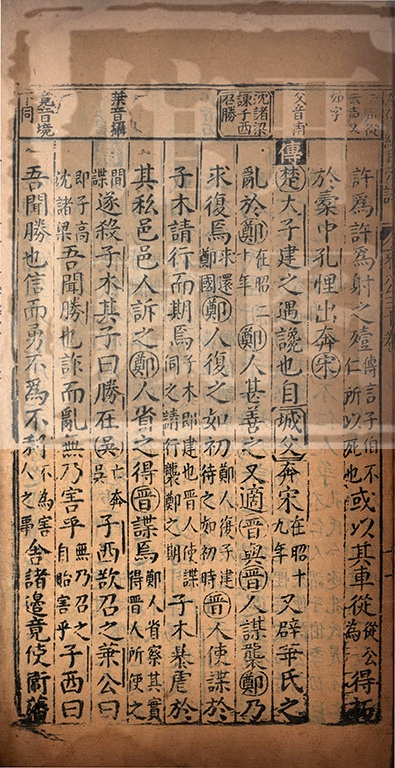 許為許為射之殪傳言子伯不仁所以死也或以其車從從公為得祏
於橐中孔悝出奔宋
父音甫
傳楚大子建之遇讒也自城父奔宋在昭十九年又辟華氏之
沈諸梁諫子西召勝
亂於鄭在昭二十年鄭人甚善之又適晉與晉人謀襲鄭乃
求復焉求還鄭國鄭人復之如初鄭人復子建待之如初時晉人使諜於
子木請行而期焉子木即建也晉人使諜同之請行襲鄭之期子木暴虐於
葉音攝
其私邑邑人訴之鄭人省之得晉諜焉鄭人省察其實得晉人所使之
間諜遂殺子木其子曰勝在吳亡奔吳子西欲召之葉公曰
即子高沈諸梁吾聞勝也詐而亂無乃害乎無乃召之自貽害乎子西曰
竟音境
同
吾聞勝也信而勇不為不利不為害人之事舍諸邊竟使衛藩